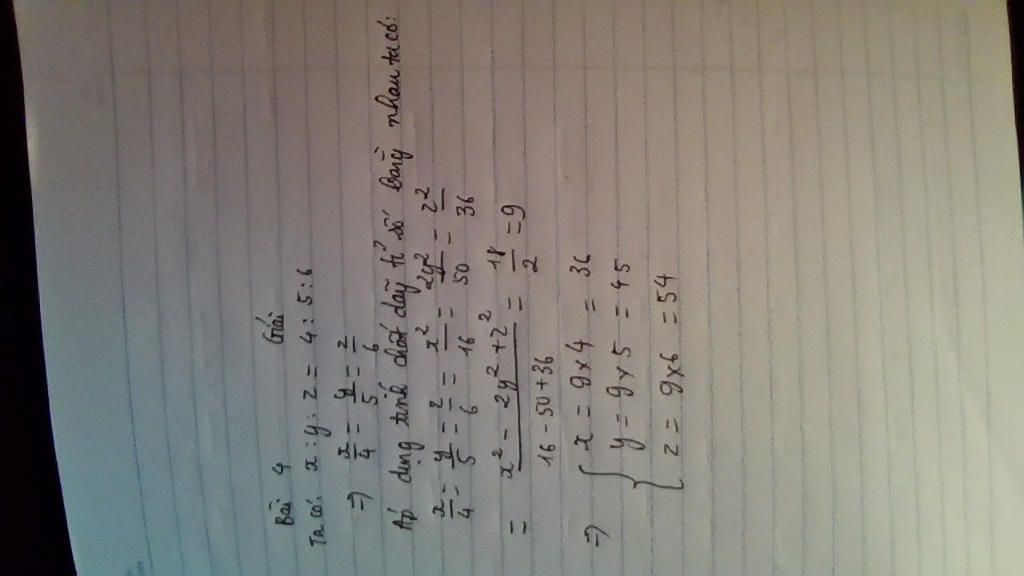 Bài 4 Giải
Ta có: x : y : z = 4 : 5 : 6
=> x/4 = y/5 = z/6
Áp dụng tính chất dãy tỉ số bằng nhau ta có:
x/4 = y/5 = z/6 = x²/16 = 2y²/50 = z²/36
= (x² - 2y² + z²)/(16 - 50 + 36) = 18/2 = 9
=> { x = 9 x 4 = 36
y = 9 x 5 = 45
z = 9 x 6 = 54